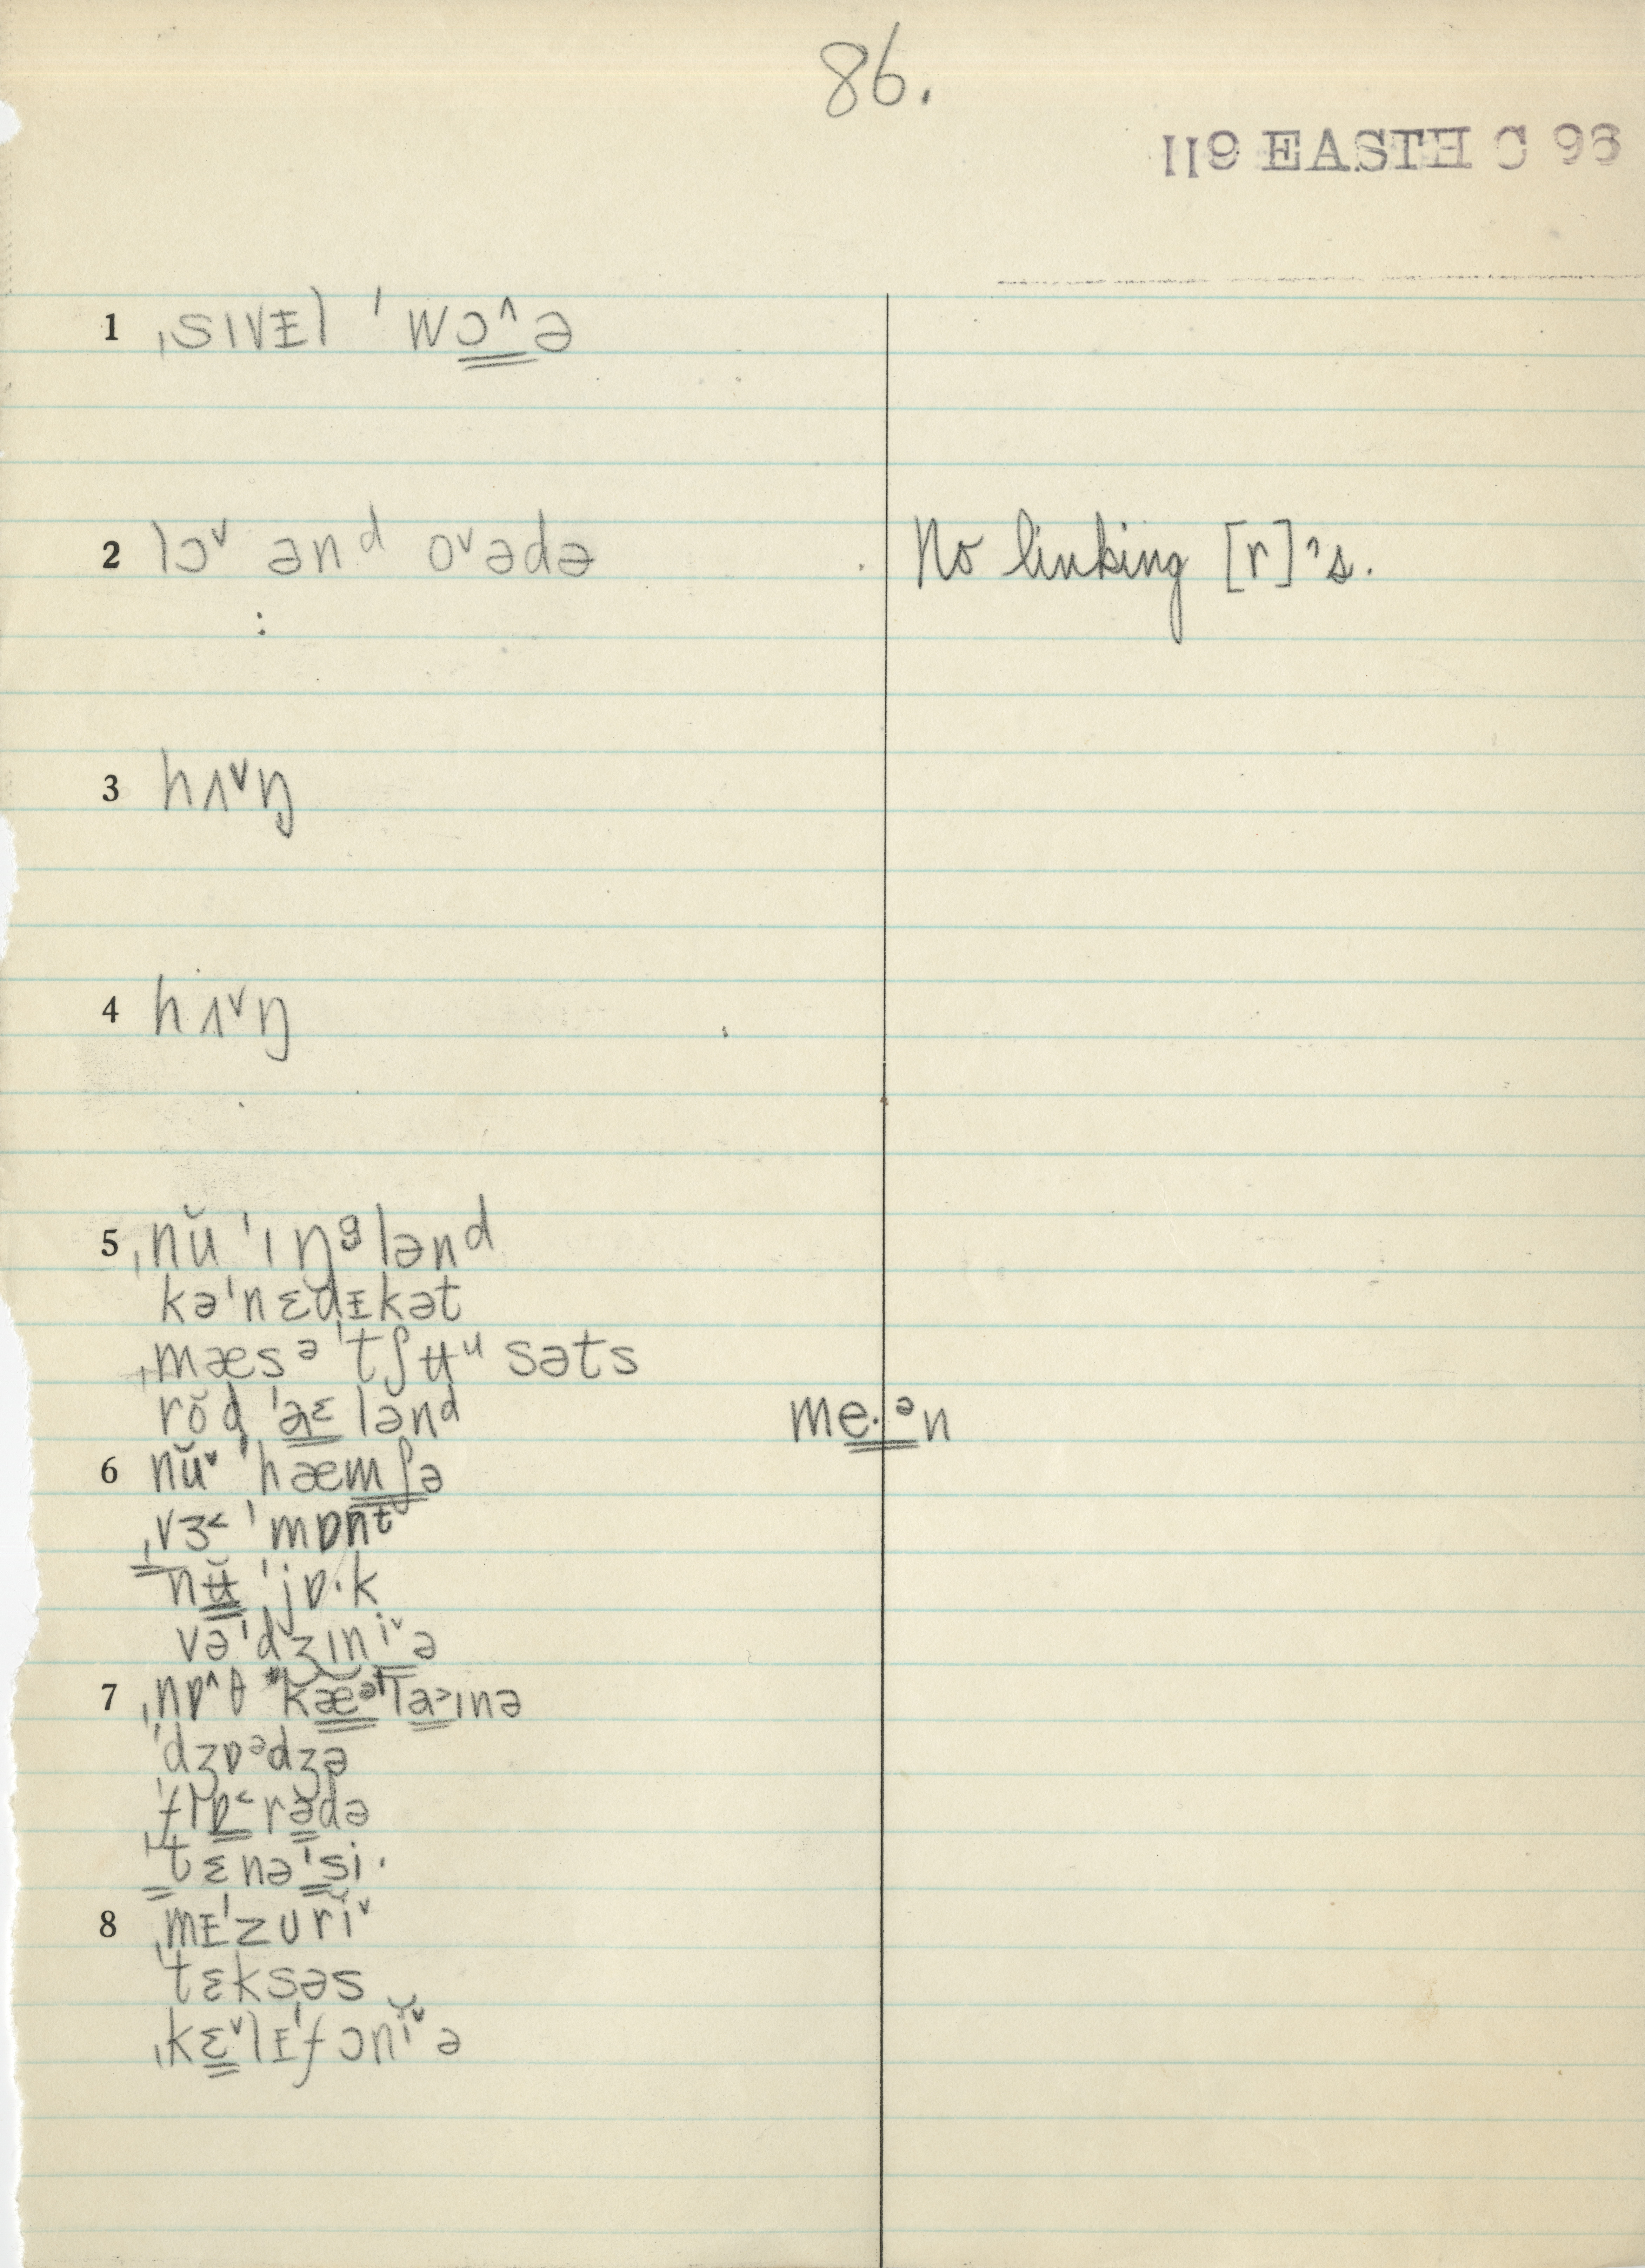 86.
119 EASTH C 96
1 ˌsɪvᵻl ˈwɔ˄ə
2 lɔ˅ ənᵈ o˅ədə No linking [r]'s.
3 hʌ˅ŋ
4 hʌ˅ŋ
5 ˌnŭ ˈɪŋᵍlənᵈ
kəˈnɛdᵻkət
ˌmæsᵊˈtʃʉᵘsəts
rŏd ˈaᵋlənᵈ me·ᵊn
6 nŭ˅ ˈhæmʃə
ˌvɜ˂ ˈmɒnᵗ
nʉ̆ ˈjɒ·k
vəˈdʒɪni˅ə
7 ˌnɒ˄θ kæᵊˈla˃ɪnə
ˈdʒɒᵊdʒə
ˈflɒ˂rədə
ˈtɛnəˈsi·
8 ˌmᵻˈzurĭ˅
ˈtɛksəs
ˌkɛ˅lᵻˈfɔnĭ˅ə